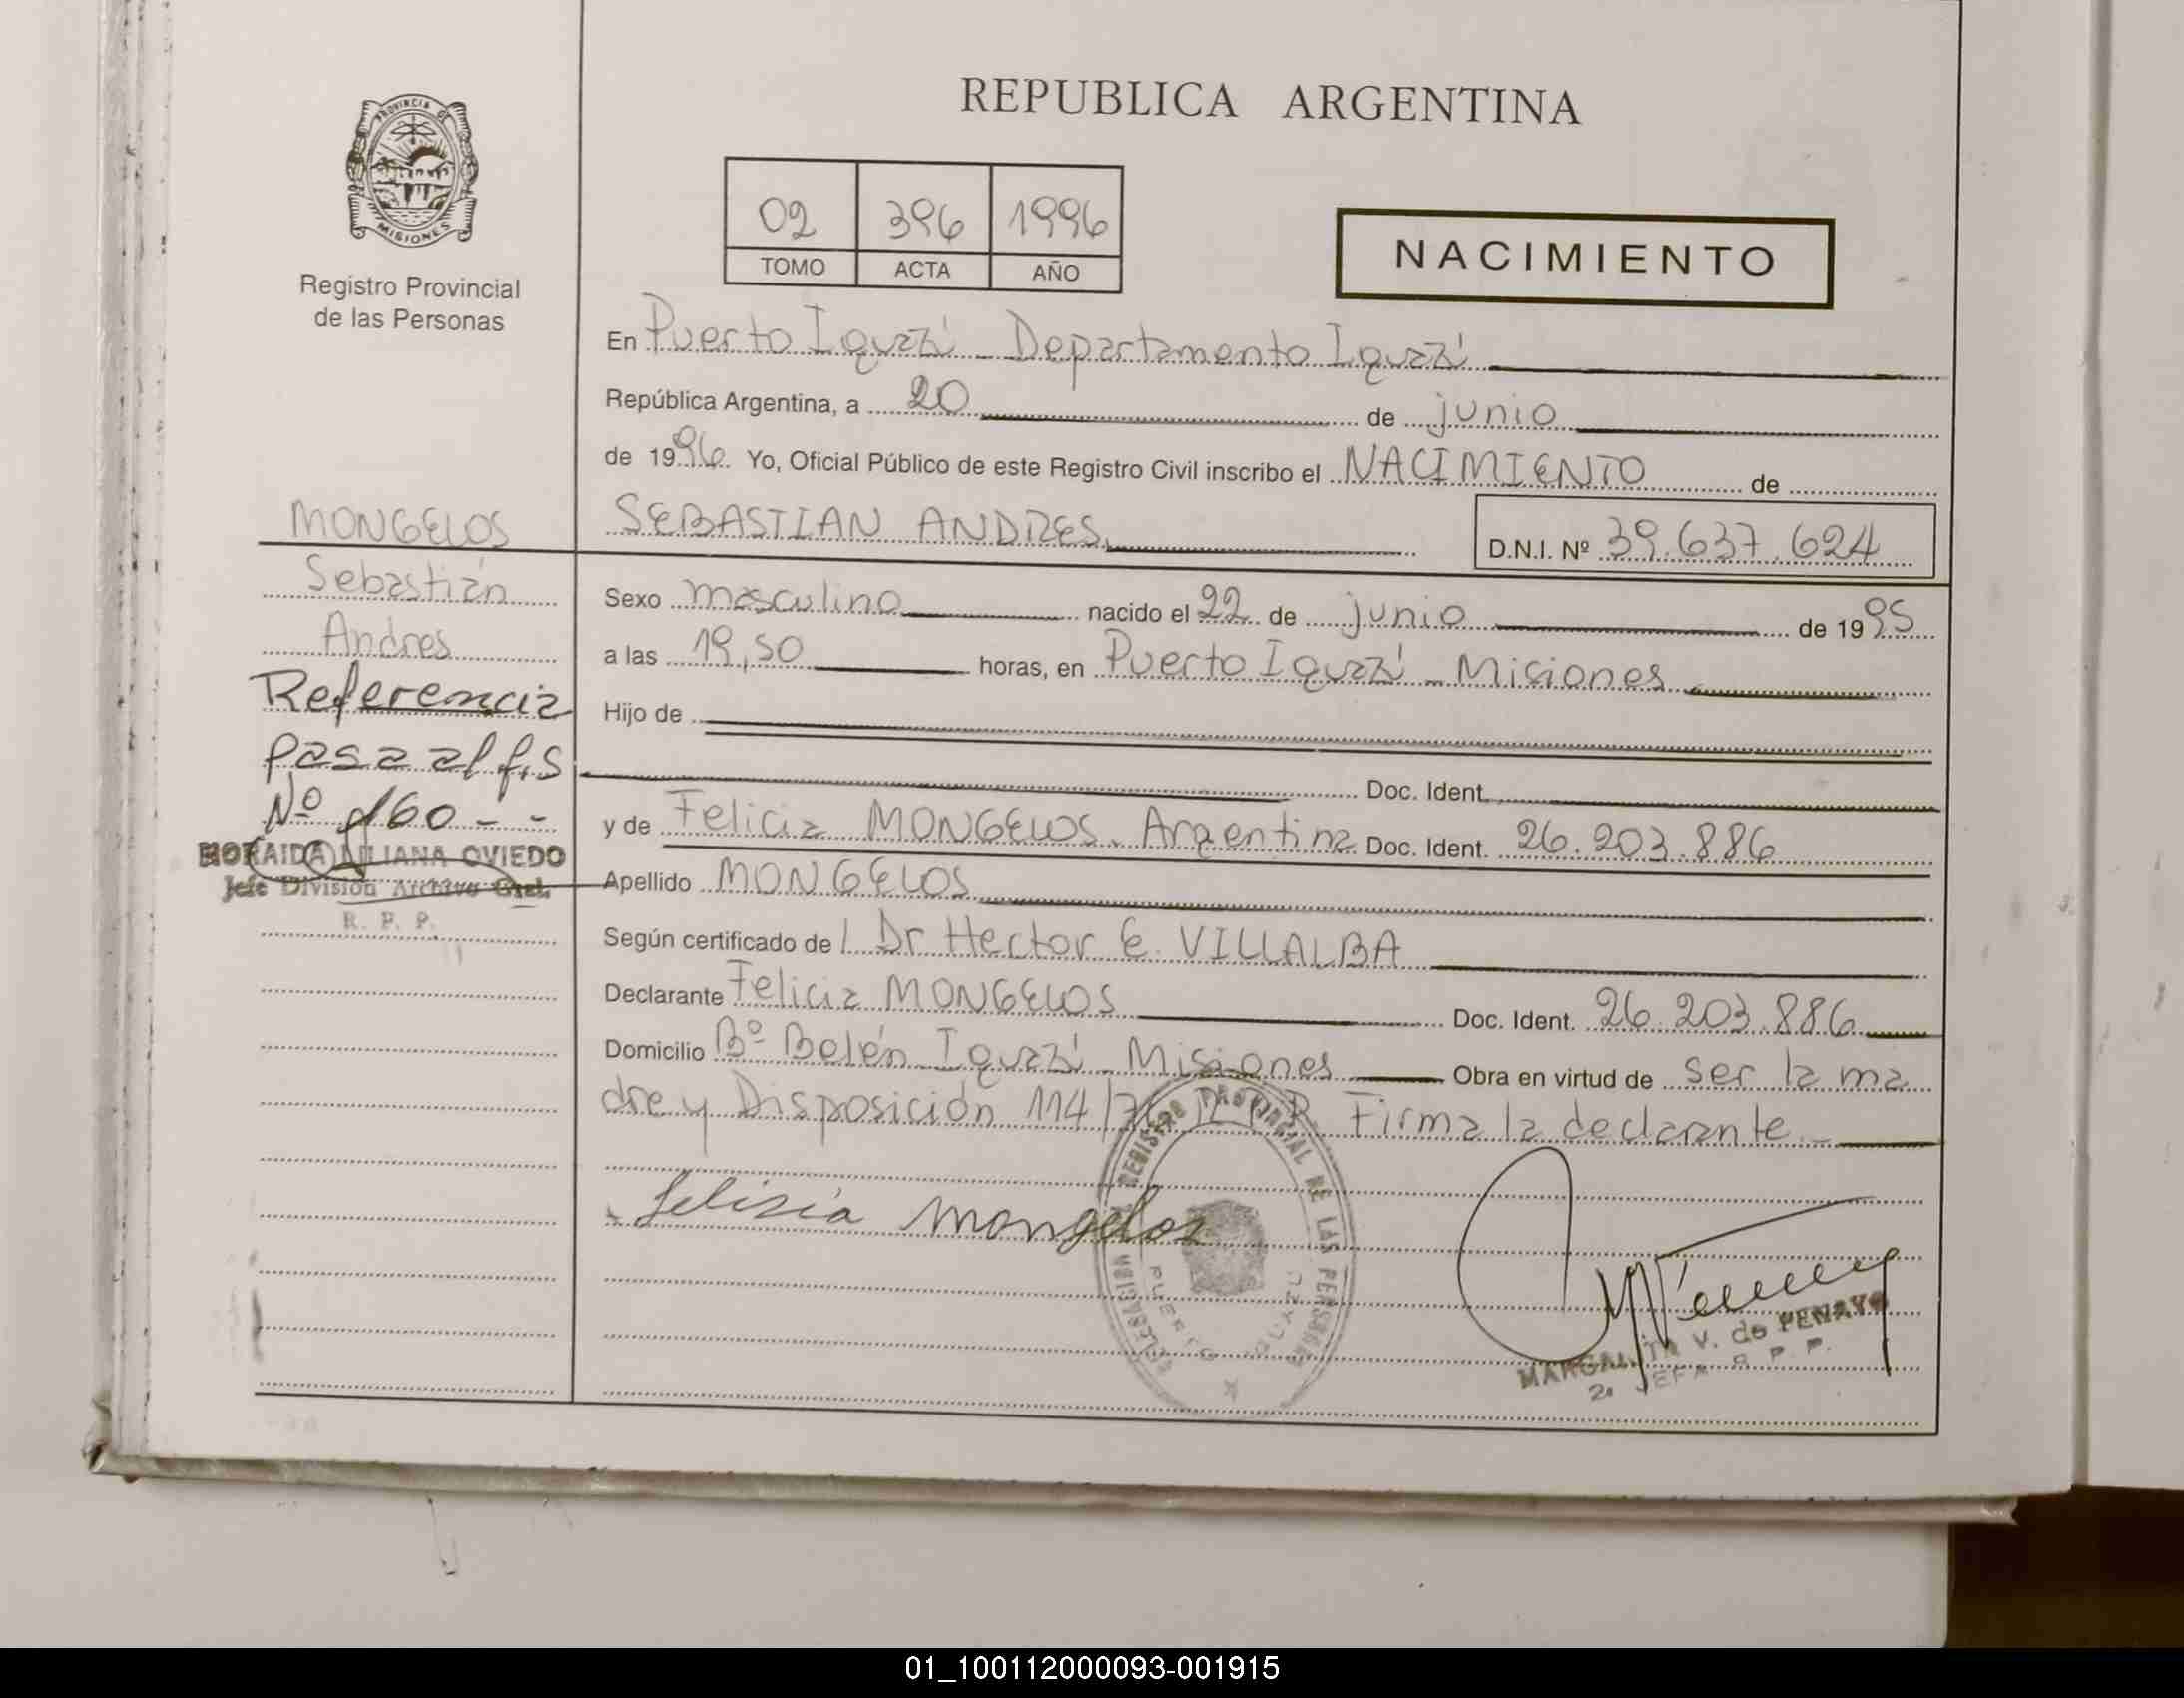 REPUBLICA ARGENTINA
PROVINCIA DE
MISIONES
Registro Provincial
de las Personas
02 396 1996
TOMO ACTA AÑO
NACIMIENTO
En Puerto Iguazú - Departamento Iguazú
República Argentina, a 20 de junio
de 1996 Yo, Oficial Público de este Registro Civil inscribo el NACIMIENTO de
SEBASTIAN ANDRES D.N.I. Nº 39.637.624
MONGELOS
Sebastián
Andres
Referencia
pasa al f.s
Nº 160 - -
LILIANA OVIEDO
Jefe División Archivo Gral.
R. P. P.
Sexo masculino nacido el 22 de junio de 1995
a las 19,50 horas, en Puerto Iguazú - Misiones
Hijo de
Doc. Ident.
y de Felicia MONGELOS. Argentina Doc. Ident. 26.203.886
Apellido MONGELOS
Según certificado de Dr Hector E. VILLALBA
Declarante Felicia MONGELOS Doc. Ident. 26.203.886
Domicilio Bº Belén - Iguazú - Misiones Obra en virtud de ser la ma
dre y Disposición 114/ Firma la declarante -
Felisia mongelos
REGISTRO PROVINCIAL DE LAS PERSONAS
DELEGACION
PUERTO IGUAZU
MARGARITA V. de PENAYO
2a JEFA R. P. P.
01_100112000093-001915